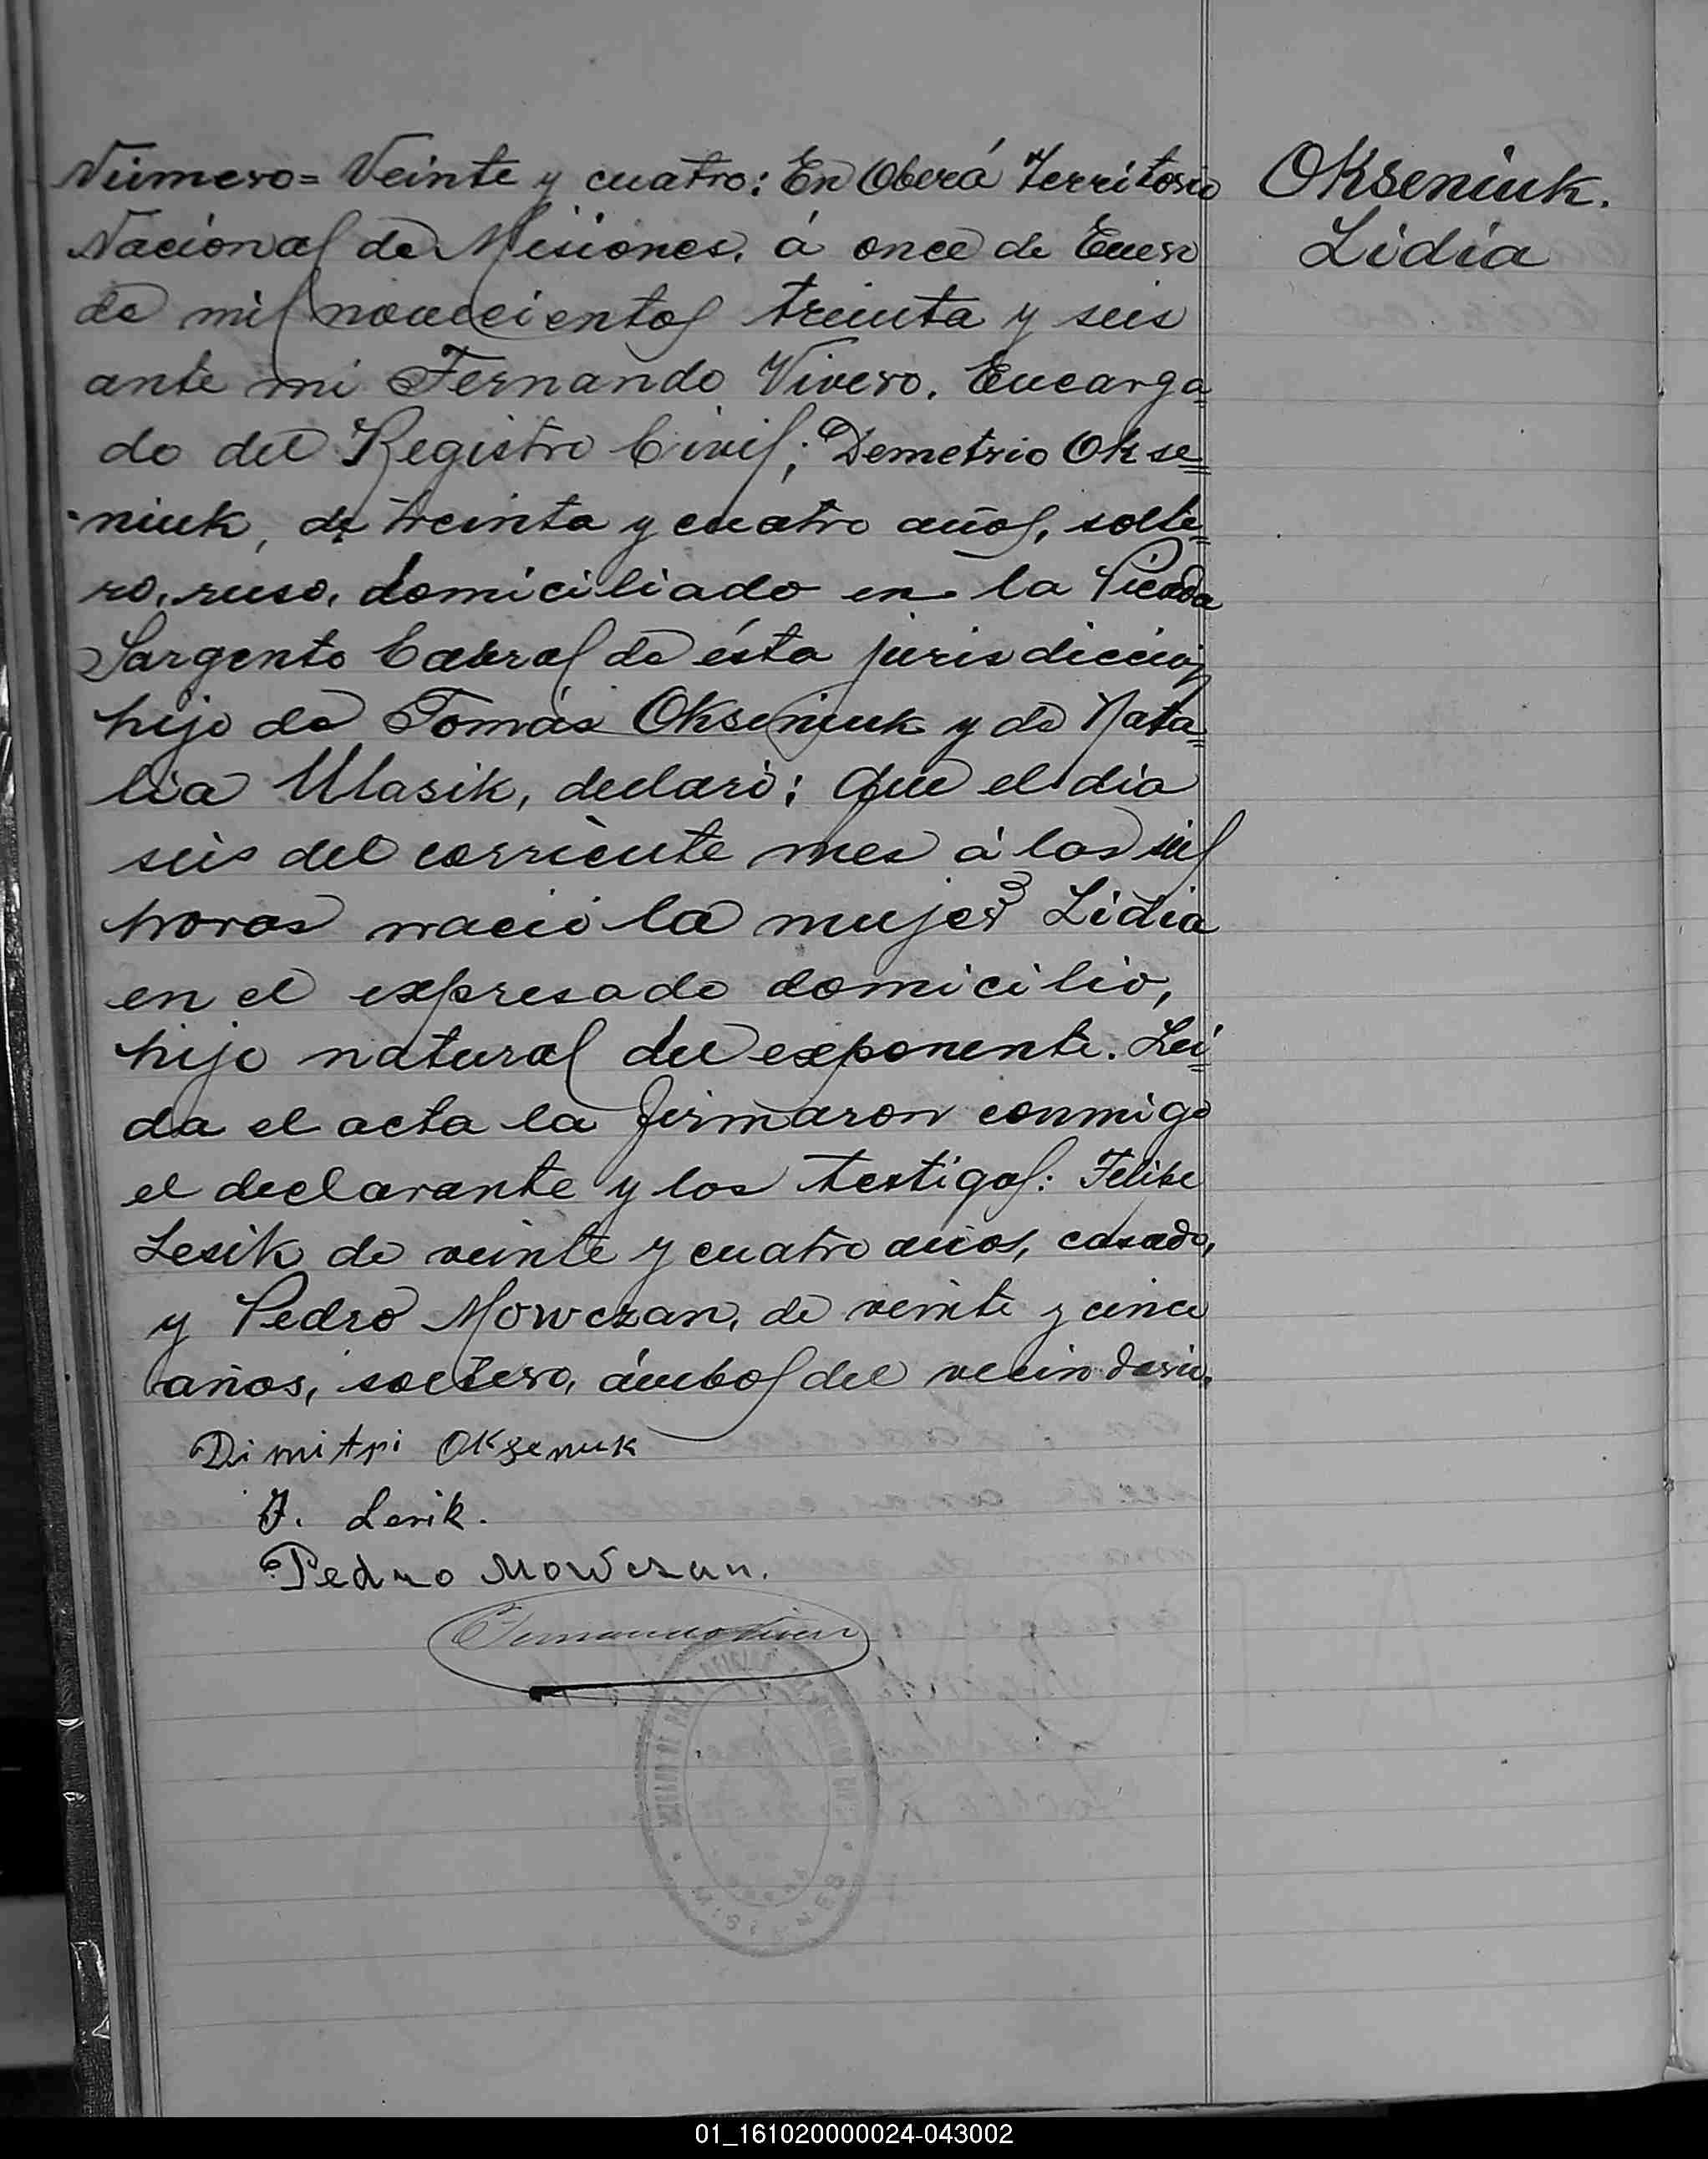 Número= Veinte y cuatro: En Oberá Territorio
Nacional de Misiones, á once de Enero
de mil novecientos treinta y seis
ante mi Fernando Vivero, Encarga=
do del Registro Civil; Demetrio Okse=
niuk, de treinta y cuatro años, solte=
ro, ruso, domiciliado en la Picada
Sargento Cabral de ésta jurisdicción
hijo de Tomás Okseniuk y de Nata=
lia Ulasik, declaró: Que el dia
seis del corriente mes á las seis
horas nació la mujer Lidia
en el expresado domicilio,
hijo natural del exponente. Lei=
da el acta la firmaron conmigo
el declarante y los testigos: Felipe
Lesik de veinte y cuatro años, casado,
y Pedro Mowczan, de veinte y cinco
años, soltero, ámbos del vecindario.
Okseniuk.
Lidia
Dimitri Oksenuk
F. Lesik.
Pedro Mowczan.
Fernando Vivero
JUZGADO DE PAZ
MISIONES
01_161020000024-043002